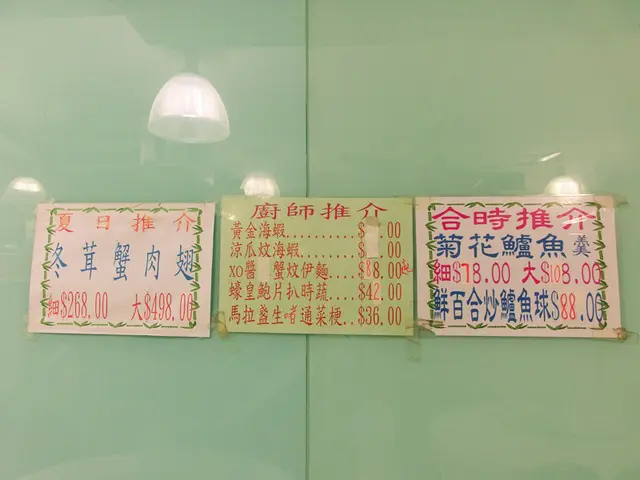 夏日推介
冬茸蟹肉翅
細$268.00 大$498.00
廚師推介
黃金海蝦..........$ .00
涼瓜炆海蝦........$ .00
XO醬 蟹炆伊麵....$88.00
蠔皇鮑片扒時蔬....$42.00
馬拉盞生啫通菜梗..$36.00
合時推介
菊花鱸魚羹
細$78.00 大$108.00
鮮百合炒鱸魚球$88.00